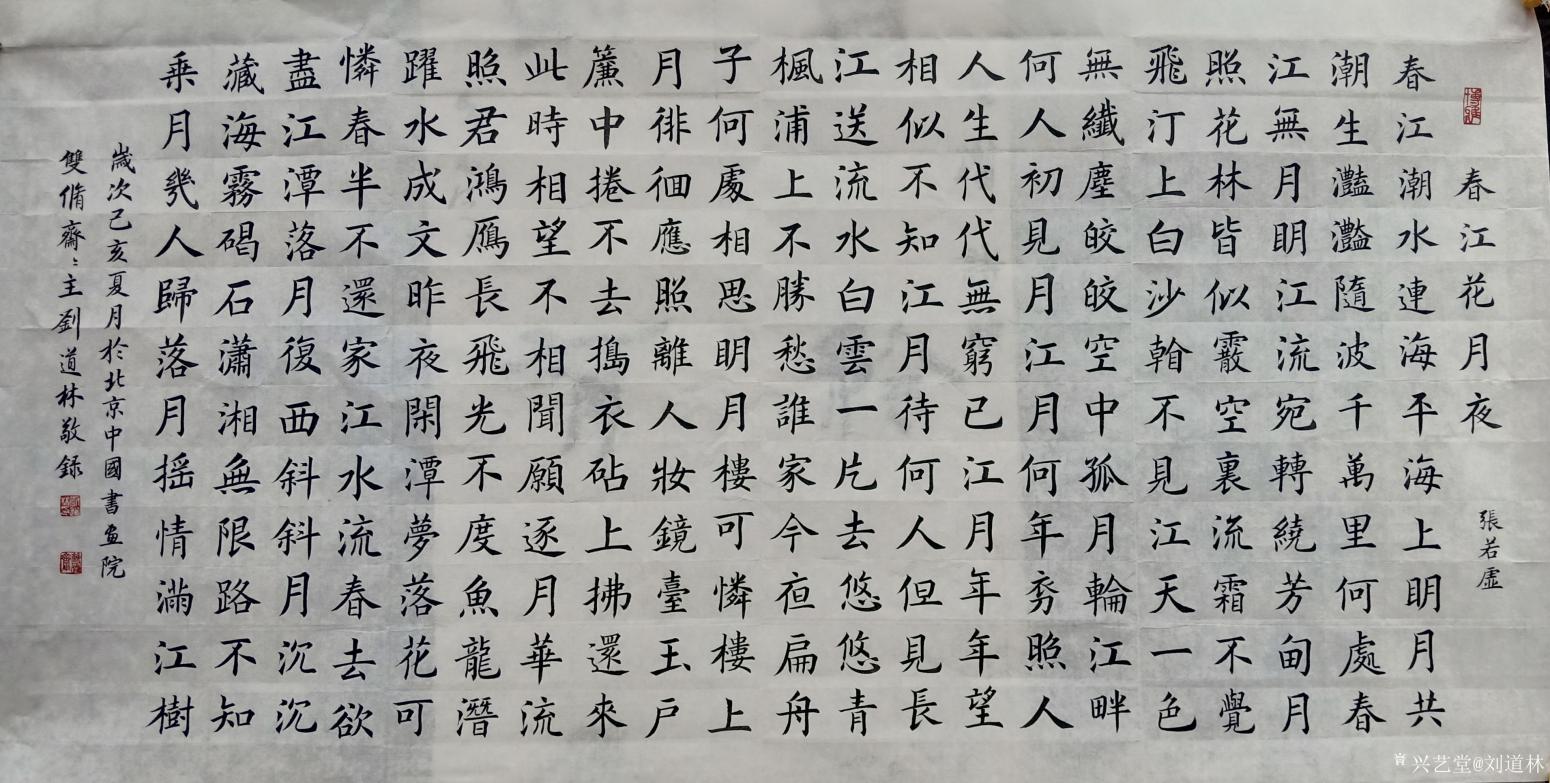 春江花月夜
張若虛
春江潮水連海平海上明月共
潮生灩灩隨波千萬里何處春
江無月明江流宛轉繞芳甸月
照花林皆似霰空裏流霜不覺
飛汀上白沙看不見江天一色
無纖塵皎皎空中孤月輪江畔
何人初見月江月何年初照人
人生代代無窮已江月年年望
相似不知江月待何人但見長
江送流水白雲一片去悠悠青
楓浦上不勝愁誰家今夜扁舟
子何處相思明月樓可憐樓上
月徘徊應照離人妝鏡臺玉戶
簾中捲不去搗衣砧上拂還來
此時相望不相聞願逐月華流
照君鴻鴈長飛光不度魚龍潛
躍水成文昨夜閑潭夢落花可
憐春半不還家江水流春去欲
盡江潭落月復西斜斜月沉沉
藏海霧碣石瀟湘無限路不知
乘月幾人歸落月搖情滿江樹
歲次己亥夏月於北京中國書画院
雙脩齋〻主劉道林敬録
兴艺堂@刘道林